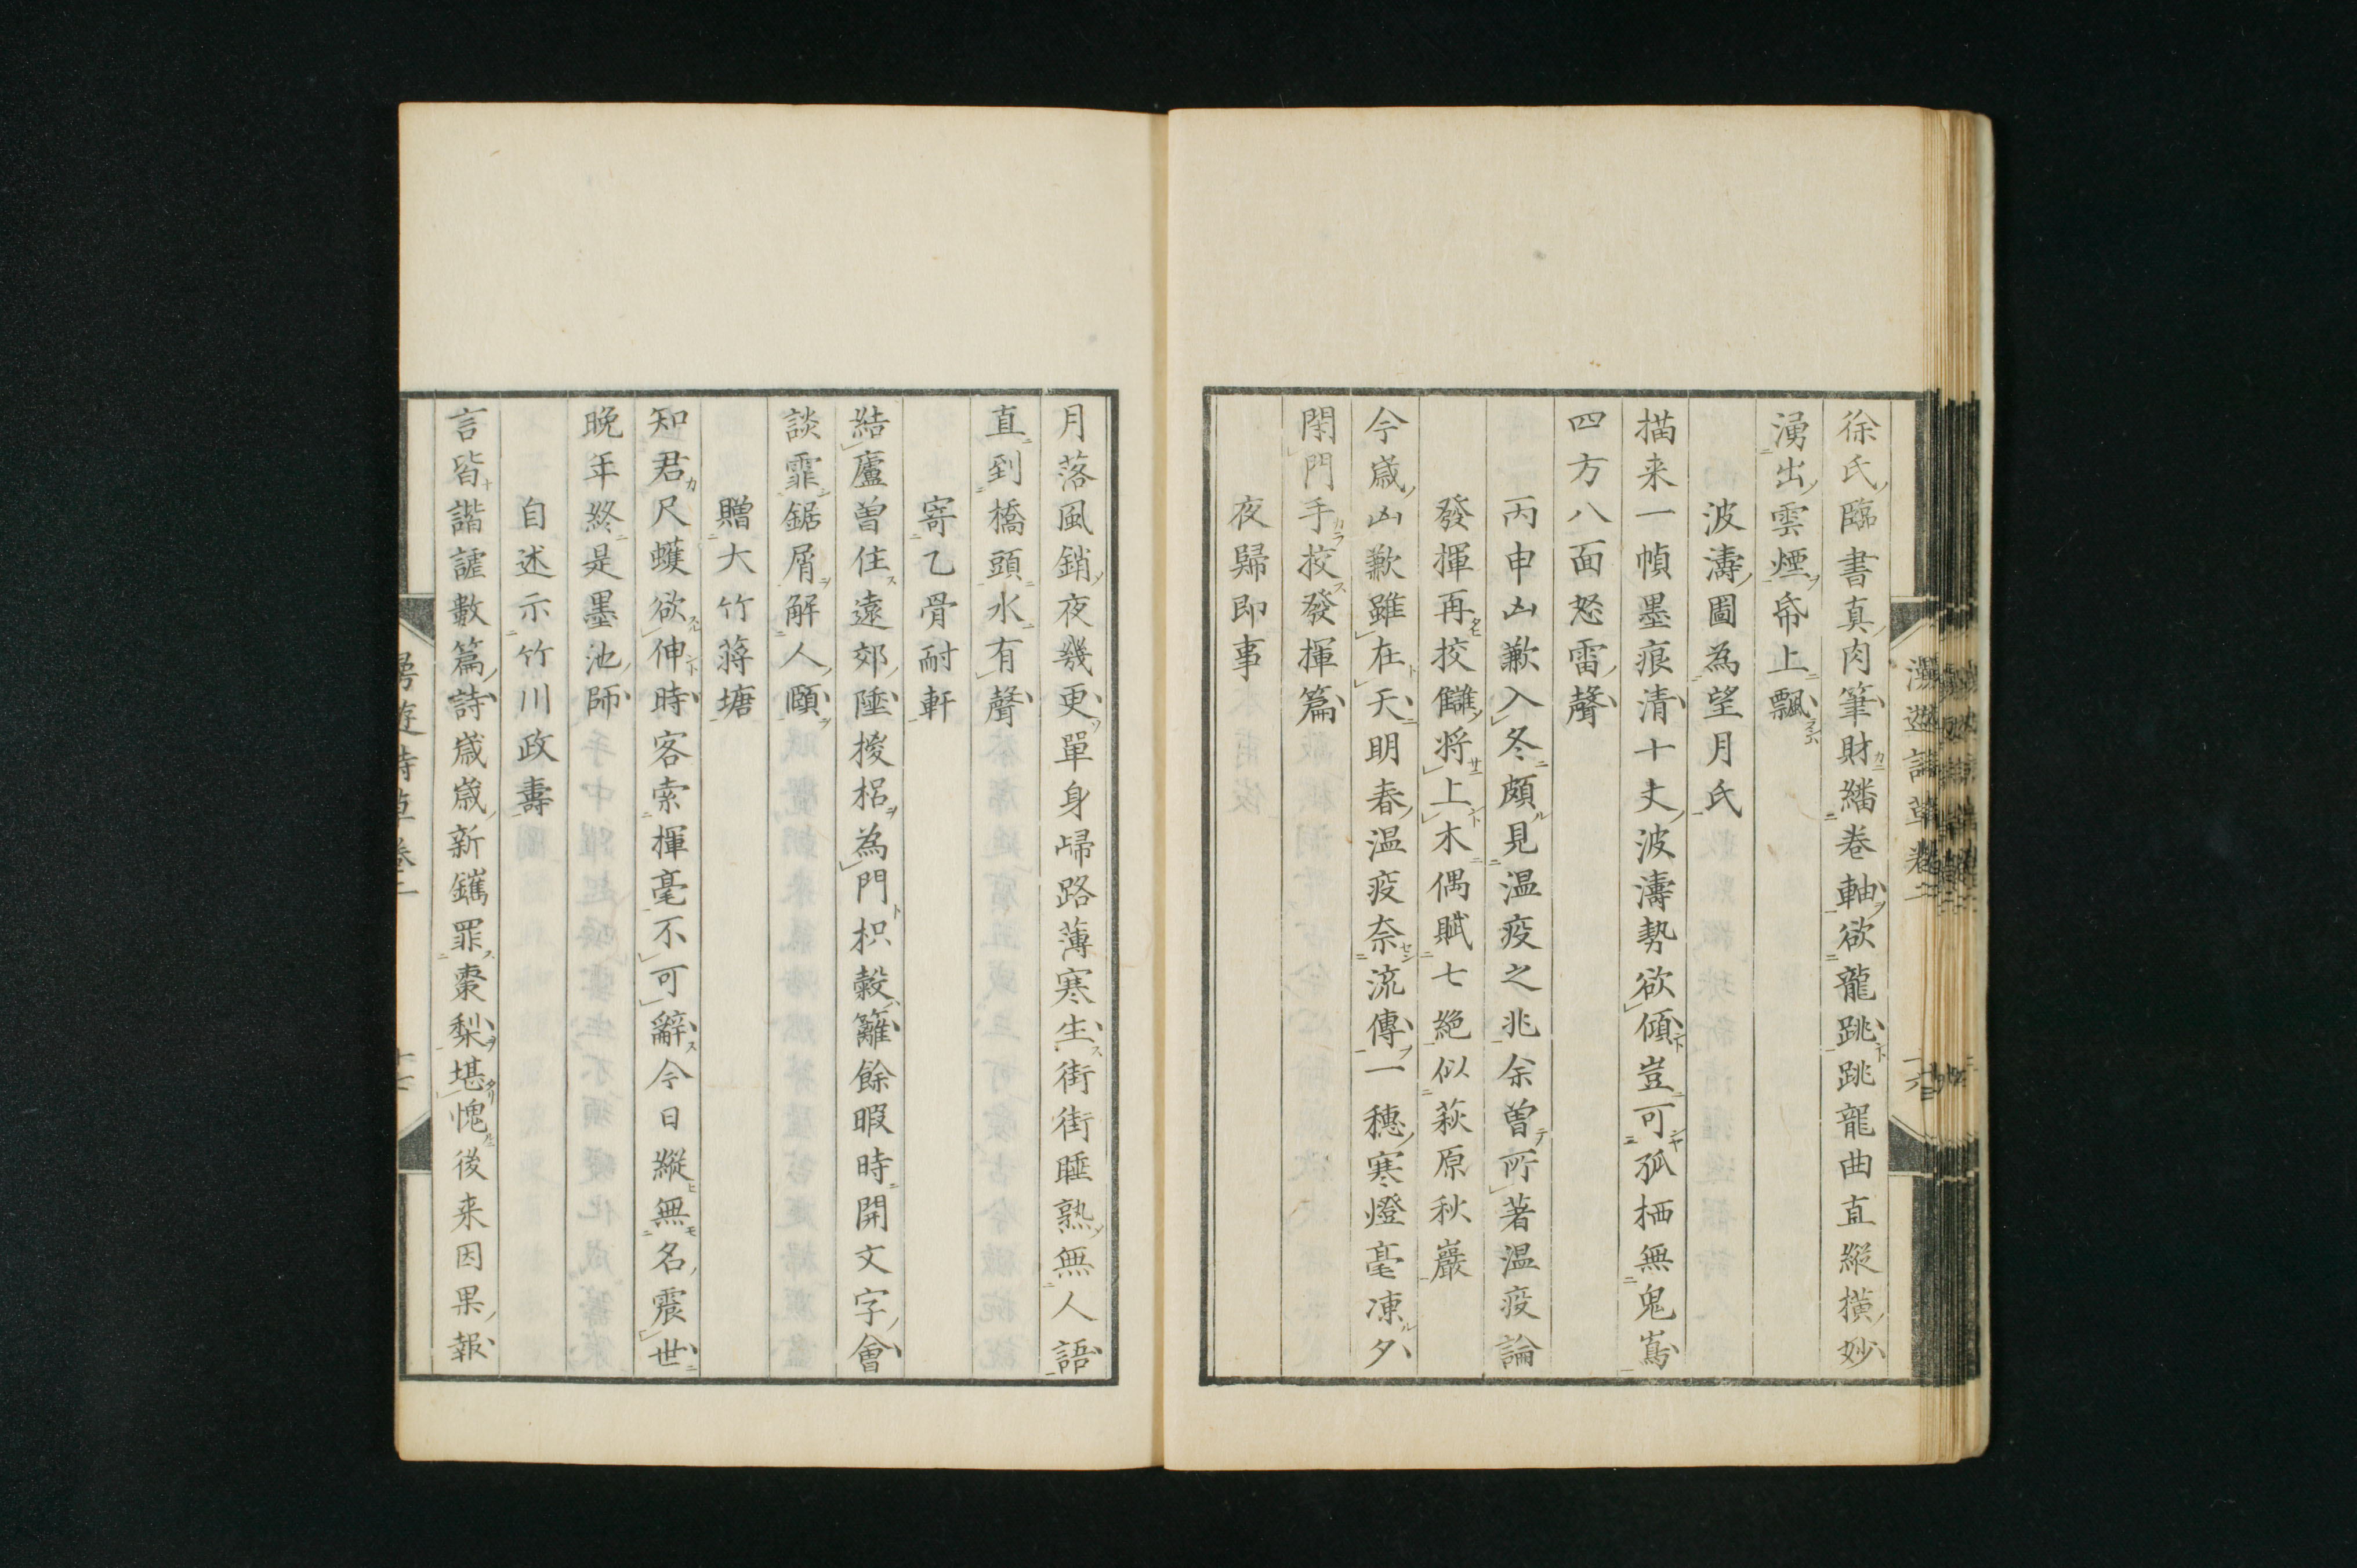 徐氏臨書真肉筆財繙巻軸欲龍跳跳龍曲直縱横妙
湧出雲煙帋上飄
波濤圖為望月氏
描来一幀墨痕清十丈波濤勢欲傾豈可孤栖無鬼嶌
四方八面怒雷聲
丙申凶歉入冬頗見温疫之兆余曽所著温疫論
發揮再挍讎将上木偶賦七絶似萩原秋巖
今歳凶歉雖在天明春温疫奈流傳一穗寒燈毫凍夕
閑門手挍發揮篇
夜歸即事
月落風銷夜幾更單身歸路薄寒生街街睡熟無人語
直到橋頭水有聲
寄乙骨耐軒
結廬曽住遠郊陲椶梠為門枳榖籬餘暇時開文字會
談霏鋸屑解人頤
贈大竹蒋塘
知君尺蠖欲伸時客索揮毫不可辭今日縱無名震世
晩年終是墨池師
自述示竹川政壽
言皆諧謔數篇詩歳歳新鐫罪棗梨堪愧後来因果報
漫遊詩草巻二